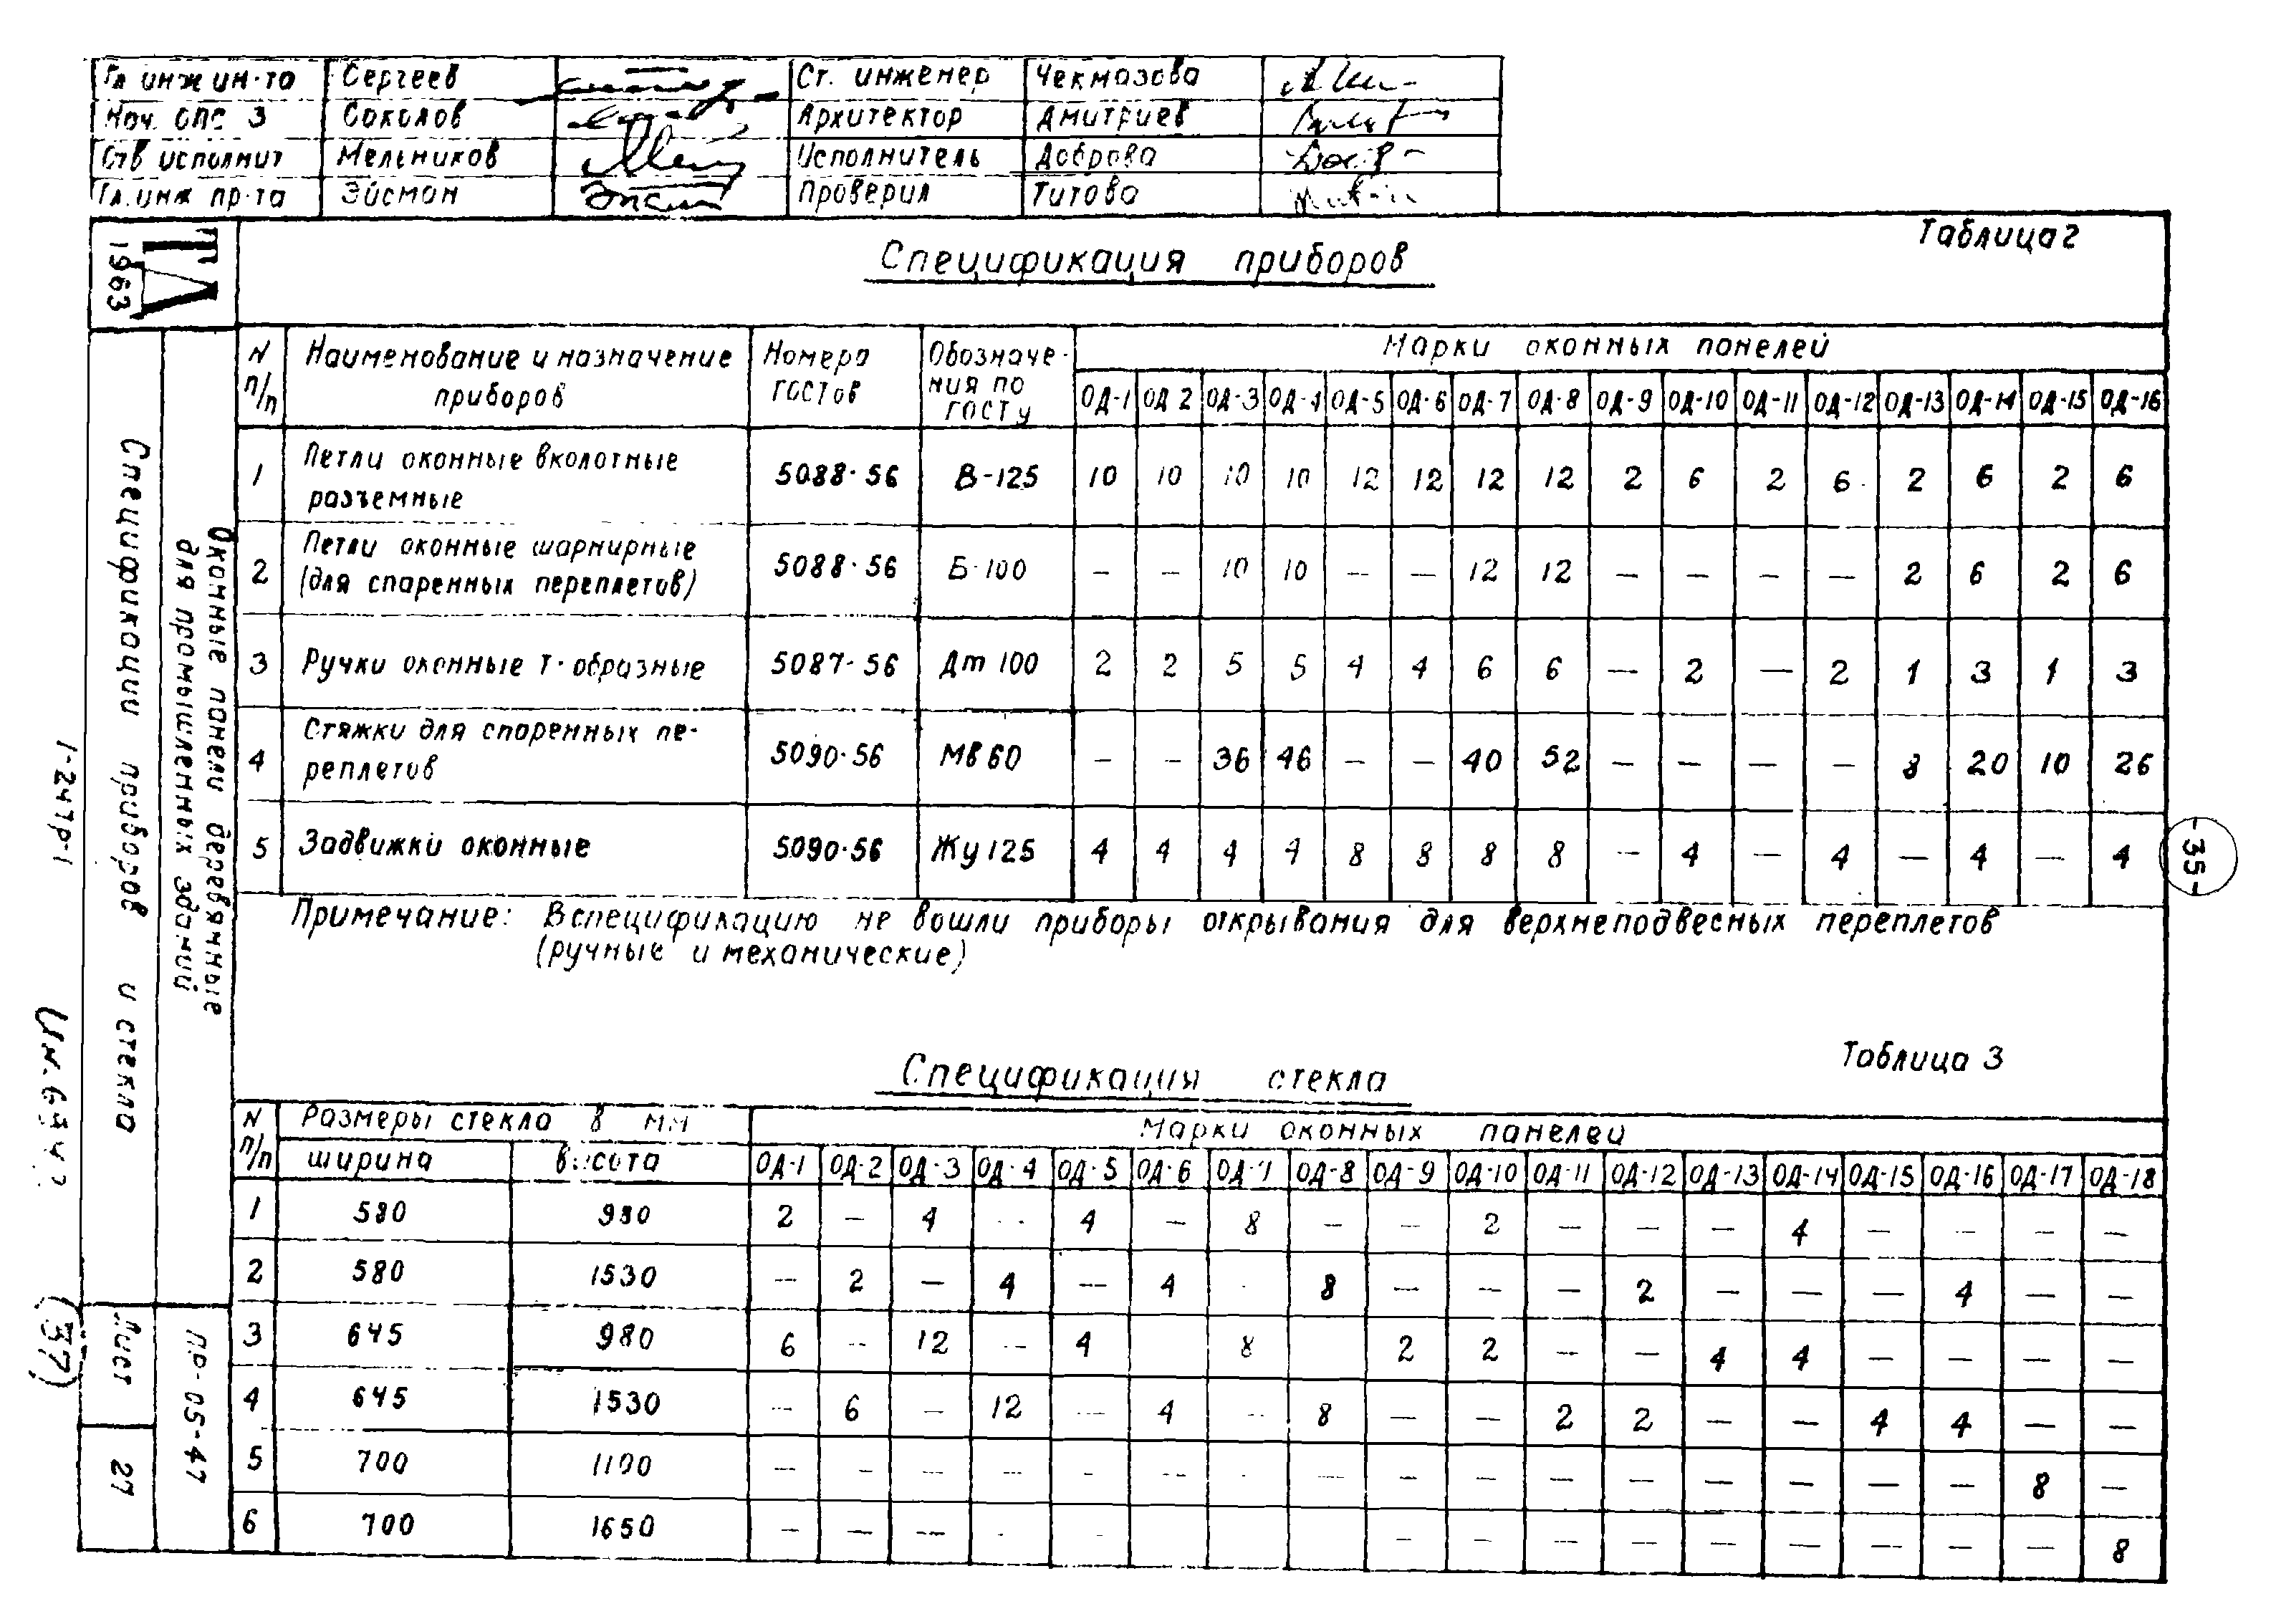 Гл инж ин-та Сергеев Ст. инженер Чекмазова
Нач. ОПС 3 Соколов Архитектор Дмитриев
Отв исполнит Мельников Исполнитель Доброва
Гл. инж пр-та Эйсман Проверил Титова
ТД 1963
Таблица 2
Спецификация приборов
N п/п Наименование и назначение приборов Номера ГОСТов Обозначения по ГОСТу Марки оконных панелей
ОД-1 ОД 2 ОД-3 ОД-4 ОД-5 ОД-6 ОД-7 ОД-8 ОД-9 ОД-10 ОД-11 ОД-12 ОД-13 ОД-14 ОД-15 ОД-16
1 Петли оконные вколотные разъемные 5088-56 В-125 10 10 10 10 12 12 12 12 2 6 2 6 2 6 2 6
2 Петли оконные шарнирные (для спаренных переплетов) 5088-56 Б-100 – – 10 10 – – 12 12 – – – – 2 6 2 6
3 Ручки оконные Т-образные 5087-56 Дт 100 2 2 5 5 4 4 6 6 – 2 – 2 1 3 1 3
4 Стяжки для спаренных переплетов 5090-56 Мв 60 – – 36 46 – – 40 52 – – – – 8 20 10 26
5 Задвижки оконные 5090-56 Жу 125 4 4 4 4 8 8 8 8 – 4 – 4 – 4 – 4
Примечание: В спецификацию не вошли приборы открывания для верхнеподвесных переплетов
(ручные и механические)
Таблица 3
Спецификация стекла
N п/п Размеры стекла в мм Марки оконных панелей
ширина высота ОД-1 ОД-2 ОД-3 ОД-4 ОД-5 ОД-6 ОД-7 ОД-8 ОД-9 ОД-10 ОД-11 ОД-12 ОД-13 ОД-14 ОД-15 ОД-16 ОД-17 ОД-18
1 580 980 2 – 4 – 4 – 8 – – 2 – – – 4 – – – –
2 580 1530 – 2 – 4 – 4 - 8 – – – 2 – – – 4 – –
3 645 980 6 – 12 – 4 8 2 2 – – 4 4 – – – –
4 645 1530 – 6 – 12 – 4 – 8 – – 2 2 – – 4 4 – –
5 700 1100 – – – – – – - – – – – – – – – – 8 –
6 700 1650 – – – - - – – – – – – – – – 8
Оконные панели деревянные
для промышленных зданий
Спецификации приборов и стекла
ПР-05-47
Лист
27
1-247р-1
(37)
-35-